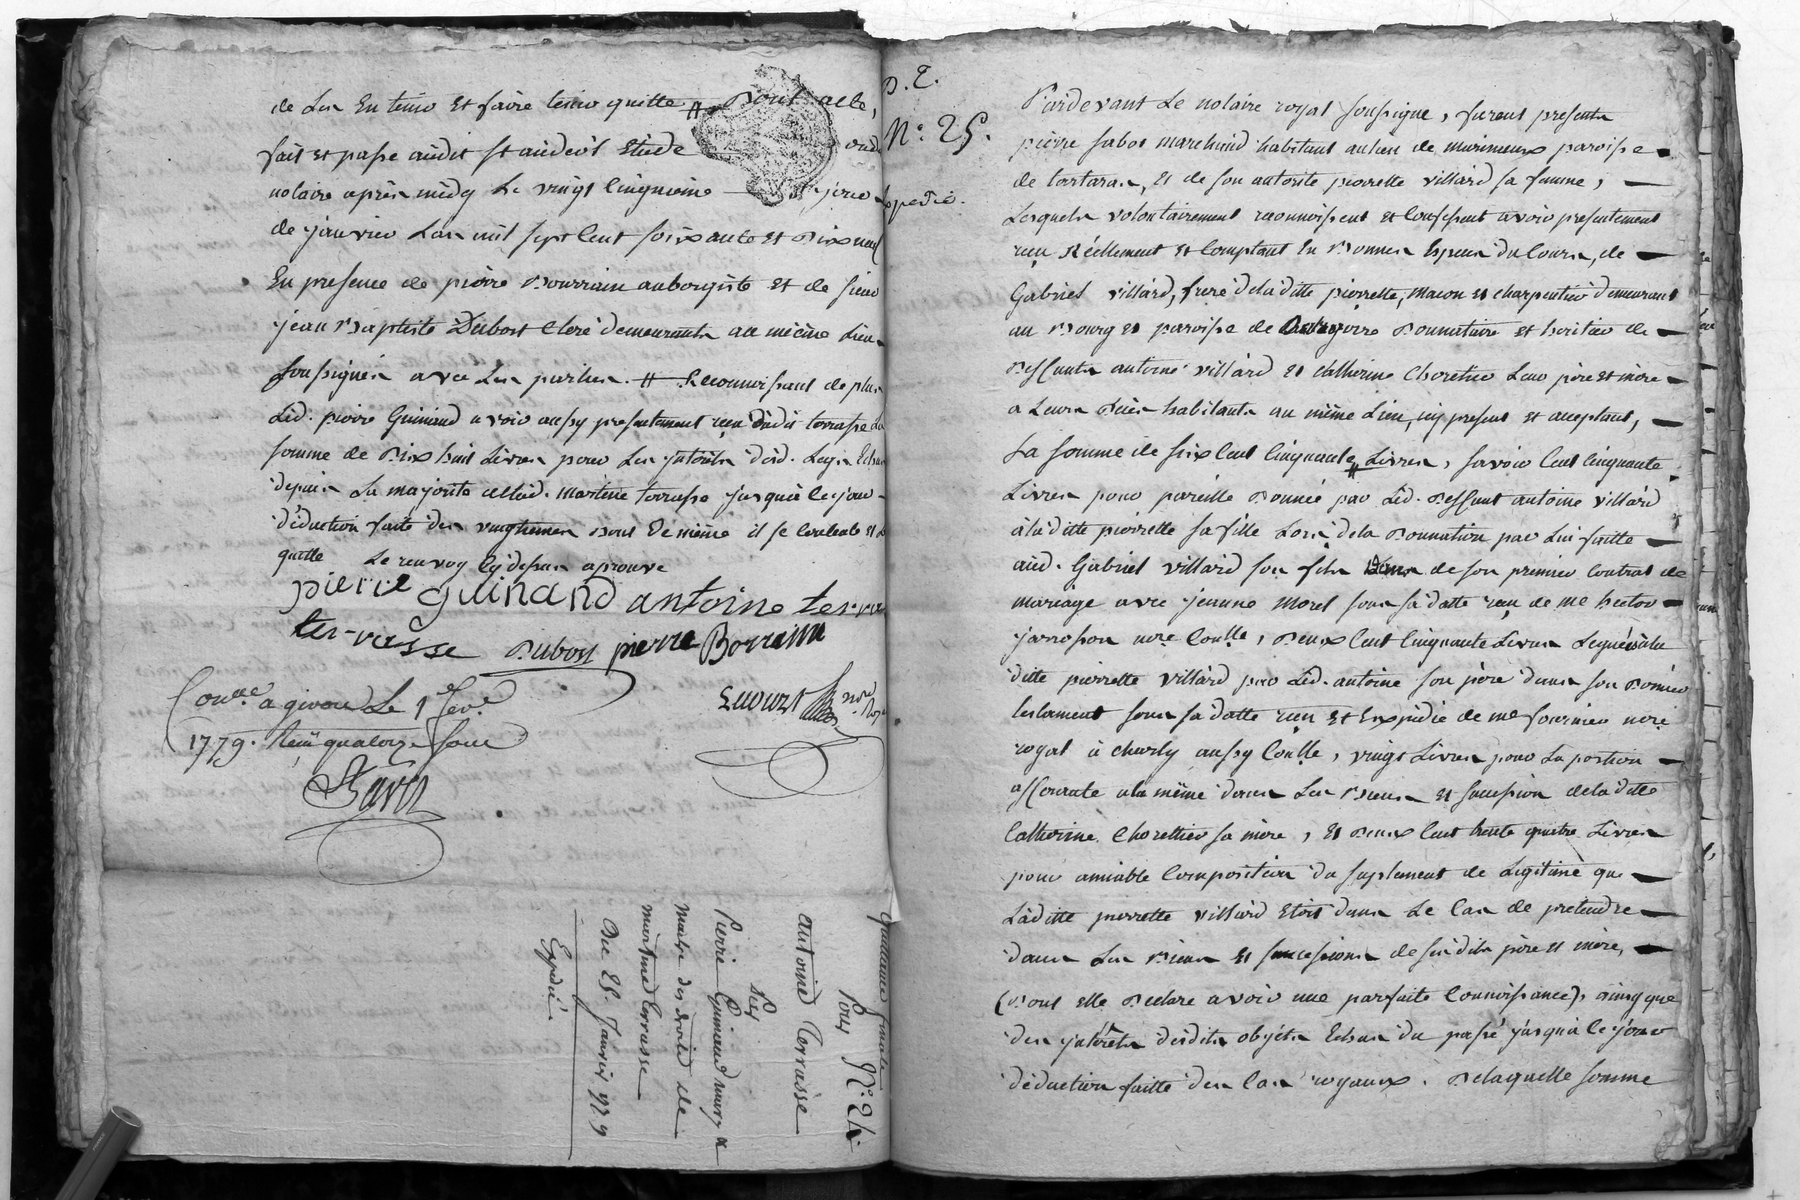 de les en tenir et faire tenir quitte # Dont acte,
fait et passé audit St andéol Etude
notaire après midy Le vingt cinquieme jour
de janvier L'an mil sept cent soixante et Dix neuf
En presence de pierre Bourrain aubergiste et de sieur
jean Baptiste Dubost clerc demeurants au même Lieu
soussignés avec Les parties. # Reconnoissant de plus
Led. pierre Guinand avoir aussy presentement reçu dudit terrasse La
somme de Dix huit Livres pour Les jnterêts dud. Legs Echus
depuis La majorité de Lad. martine terrasse jusqu'à ce jour
déduction faite des vingtiemes dont De même il se contente et Le
quitte Le renvoy cy dessus aprouvé
pierre guinand antoine ter-ra
ter-rasse Dubost pierre Borrain
not. Roy.
Con.lé a givors Le 1 fev.er
1779. Reçu quatorze sous
N° 24.
Quittance finale
Pour
antoine Terrasse
Les
Pierre Guinand mary &
maitre des droits de
martine terrasse
Du 25. Janvier 1779
Expedié
D. 2.
N° 25.
Expedié.
Pardevant Le notaire royal soussigné, furent presents
pierre sabot marchand habitant au lieu de murimeux paroisse
de tartaras, et de son autorité pierrette villard sa femme,
Lesquels volontairement reconnoissent et confessent avoir presentement
reçu Réellement et comptant En Bonnes Especes du cours, de
Gabriel villard, frere de laditte pierrette, macon et charpentier demeurant
au Bourg et paroisse de Donnataire et heritier de
Deffunts antoine villard et catherine Choretier Leur père et mère
a Leurs Décès habitants au même Lieu, icy present et acceptant,
La somme de six cent cinquante # Livres, savoir cent cinquante
Livres pour pareille Donnée par Led. Deffunt antoine villard
à laditte pierrette sa fille Lors de la Donnation par Lui faitte
aud. Gabriel villard son fils Dans de son premier contrat de
mariage avec jeanne morel sous sa datte reçu de me hector
jarrosson nore Con.lle, Deux cent cinquante Livres Leguées à la
ditte pierrette villard par Led. antoine son père dans son Dernier
testament sous sa datte reçu et Expédié de me fournier nore
royal à charly aussy Con.lle, vingt Livres pour La portion
afférante a la même dans Les Biens et succession de la ditte
Catherine Chorettier sa mère, et Deux cent trente quatre Livres
pour amiable Composition du suplement de Legitime que
Laditte pierrette villard Etoit dans Le cas de pretendre
dans Les Biens et successions de sesdits père et mère,
(Dont elle Déclare avoir une parfaite connoissance) ainsy que
des jnterêts desdits objets Echus du passé jusqu'à ce jour
déduction faitte des cas royaux. De laquelle somme